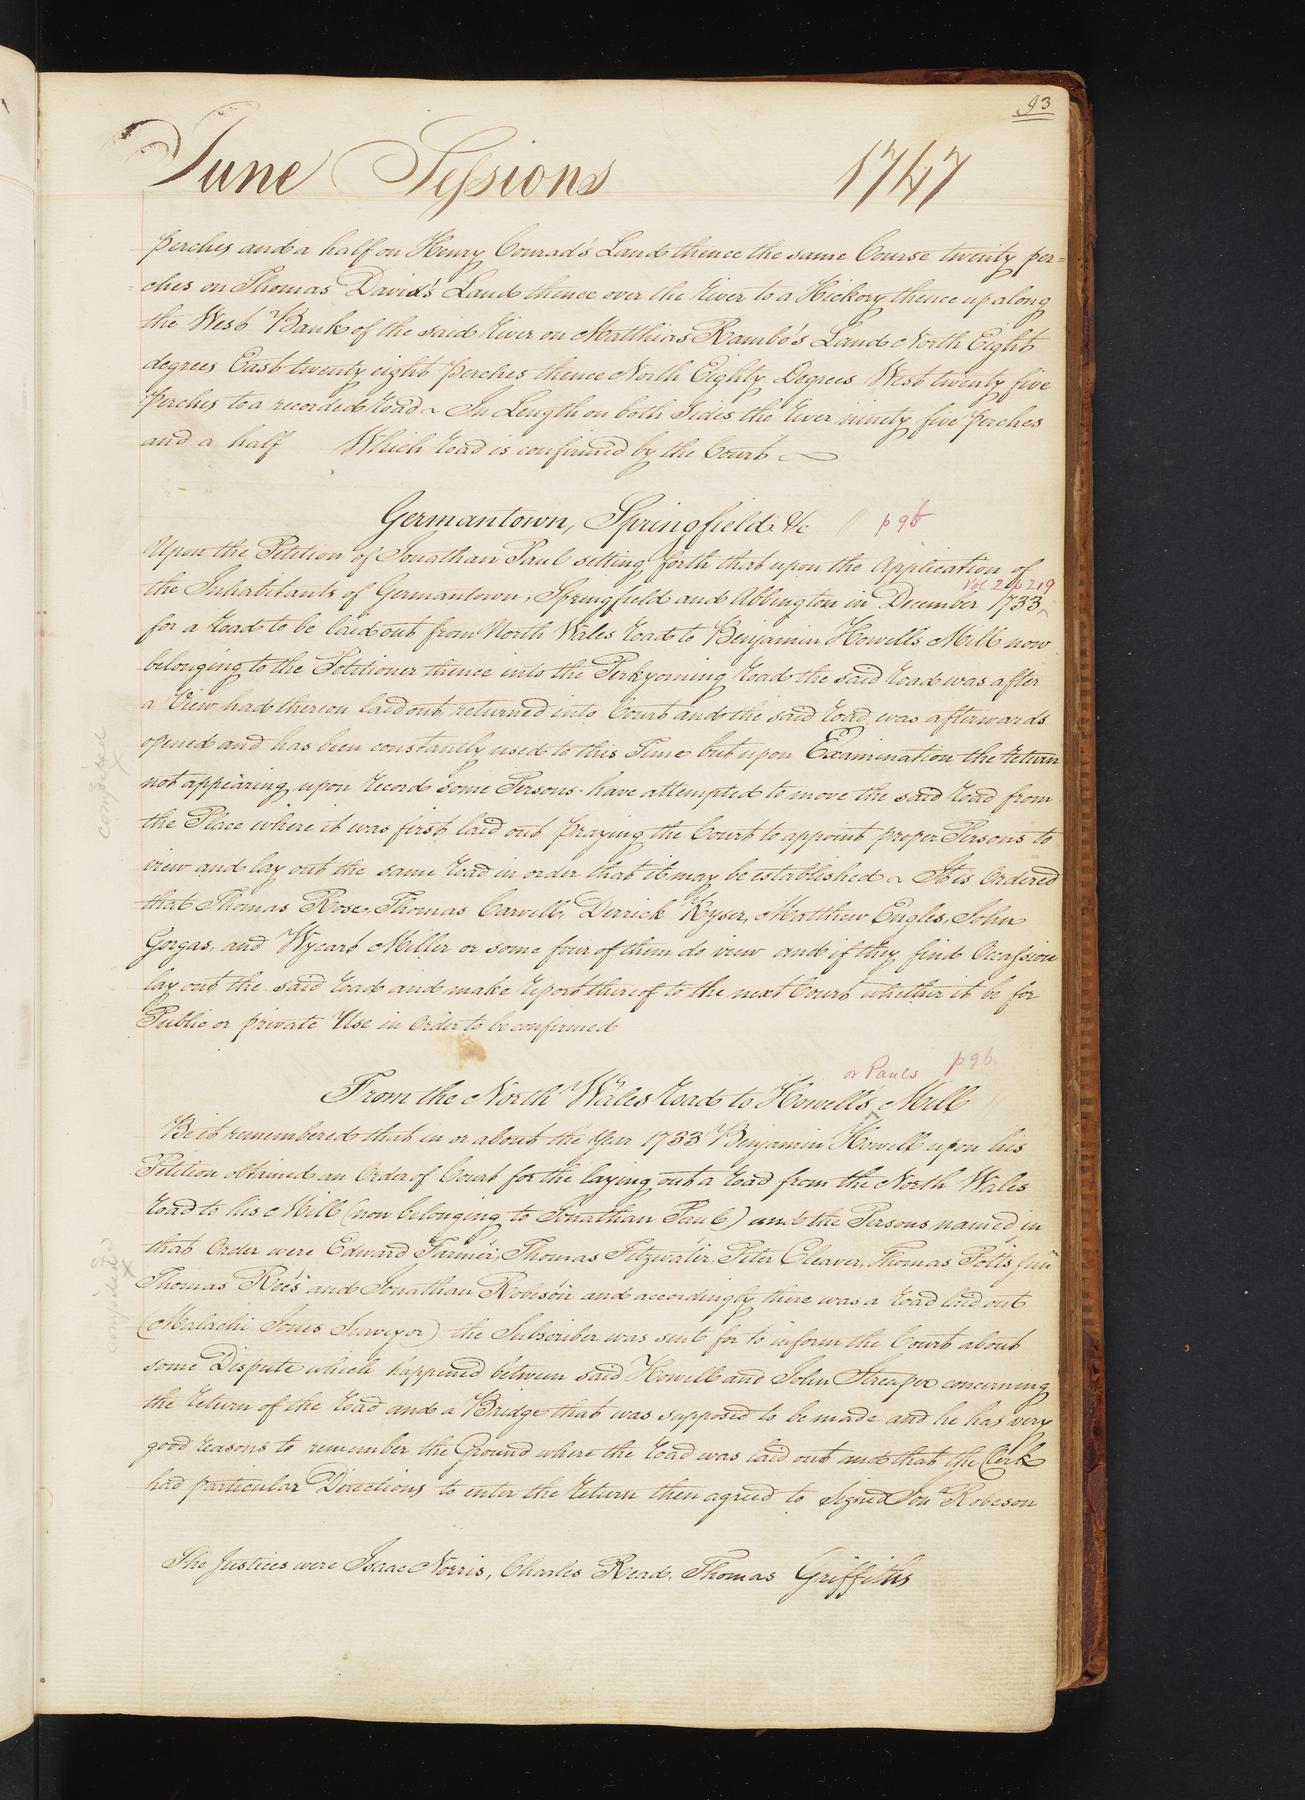 93
June Sessions 1747
perches and a half on Henry Conrad's Land thence the same Course twenty per=
=ches on Thomas David's Land thence over the River to a Hickory thence up along
the West Bank of the said River on Matthias Rambo's Land North Eight
degrees East twenty eight perches thence North Eighty Degrees West twenty five
perches to a recorded Road ~ In Length on both Sides the River ninety five perches
and a half Which Road is confirmed by the Court
Germantown, Springfield &c // p 96
Upon the Petition of Jonathan Paul setting forth that upon the Application of
Vol 2 p 219
the Inhabitants of Germantown, Springfield and Abbington in December 1733 ^
for a Road to be laid out from North Wales Road to Benjamin Howells Mill now
belonging to the Petitioner thence into the Perkyoming Road the said Road was after
a View had thereon laid out, returned into Court and the said Road was afterwards
opened and has been constantly used to this Time but upon Examination the Return
not appearing upon Record some Persons have attempted to move the said Road from
the Place where it was first laid out praying the Court to appoint proper Persons to
view and lay out the same Road in order that it may be established ~ It is Ordered
that Thomas Rose, Thomas Carvell, Derrick Kyser, Matthew Engles, John
Gorgas, and Wycart Miller or some four of them do view and if they find Occassion
lay out the said Road and make report thereof to the next Court whether it be for
Public or private Use in Order to be confirmed
or Pauls p 96
From the North Wales Road to Howells ^ Mill //
Be it remembered that in or about the Year 1733 Benjamin Howell upon his
Petition obtained an Order of Court for the laying out a Road from the North Wales
Road to his Mill (now belonging to Jonathan Paul) and the Persons named in
that Order were Edward Farmer, Thomas Fitzwater, Peter Cleaver, Thomas Potts Jun
Thomas Rees and Jonathan Robeson and accordingly there was a Road laid out
(Malachi Jones Surveyor) the Subscriber was sent for to inform the Court about
some Dispute which happened between said Howell and John Streaper concerning
the Return of the Road and a Bridge that was supposed to be made and he has very
good reasons to remember the Ground where the Road was laid out and that the Clerk
had particular Directions to enter the Return then agreed to Signed Jonn Robeson
The Justices were Isaac Norris, Charles Read, Thomas Griffiths